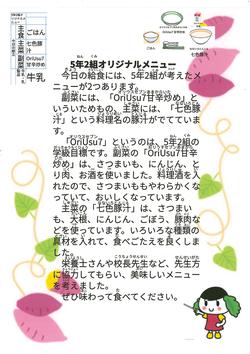 主食 ごはん
主菜 七色豚汁
副菜 OriUsu7甘辛炒め
牛乳
ごはん
OriUsu7甘辛炒め
七色豚汁
5年2組オリジナルメニュー
今日の給食には、5年2組が考えたメ
ニューが2つあります。
副菜には、「OriUsu7甘辛炒め」と
いういためもの、主菜には、「七色豚
汁」という料理名の豚汁がでていま
す。
「OriUsu7」というのは、5年2組の
学級目標です。副菜の「OriUsu7甘辛
炒め」は、さつまいも、にんじん、と
り肉、お酒を使いました。料理酒を入
れたので、さつまいももやわらかくな
っていて、おいしくなっています。
主菜の「七色豚汁」は、さつまい
も、大根、にんじん、ごぼう、豚肉な
どを使っています。いろいろな種類の
具材を入れて、食べごたえを良くしま
した。
栄養士さんや校長先生など、先生方
に協力してもらい、美味しいメニュー
を考えました。
ぜひ味わって食べてください。